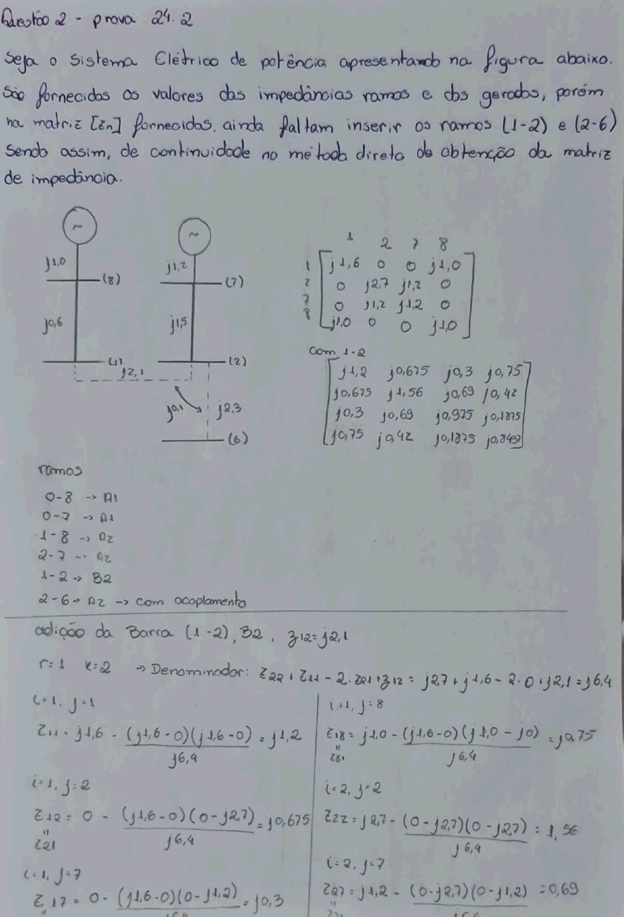 Questão 2 - prova 24.2
Seja o Sistema Elétrico de potência apresentando na figura abaixo.
São fornecidos os valores das impedâncias ramos e dos gerados, porém
na matriz [Zn] fornecidos, ainda faltam inserir os ramos (1-2) e (2-6)
Sendo assim, de continuidade no método direto de obtenção da matriz
de impedância.
~ ~
j1,0 (8) j1,2 (7)
j0,6 j1,5
(1) (2)
j2,1
j0,1 j2,3
(6)
1 2 7 8
1 j1,6 0 0 j1,0
2 0 j2,7 j1,2 0
7 0 j1,2 j1,2 0
8 j1,0 0 0 j1,0
com 1-2
j1,2 j0,675 j0,3 j0,75
j0,675 j1,56 j0,69 j0,42
j0,3 j0,69 j0,975 j0,1875
j0,75 j0,42 j0,1875
ramos
0-8 → A1
0-7 → A1
1-8 → A2
2-7 → A2
1-2 → B2
2-6 → A2 → com acoplamento
adição da Barra (1-2), B2, z12=j2,1
r=1 k=2 → Denominador: Z22 + Z11 - 2.Z21 + z12 = j2,7 + j1,6 - 2.0 + j2,1 = j6,4
i=1, j=1
Z11 = j1,6 - (j1,6-0)(j1,6-0) = j1,2
j6,4
i=1, j=2
Z12 = 0 - (j1,6-0)(0-j2,7) = j0,675
"
Z21 j6,4
i=1, j=7
Z17 = 0 - (j1,6-0)(0-j1,2) = j0,3
i=1, j=8
Z18 = j1,0 - (j1,6-0)(j1,0-j0) = j0,75
"
Z81 j6,4
i=2, j=2
Z22 = j2,7 - (0-j2,7)(0-j2,7) = 1,56
j6,4
i=2, j=7
Z27 = j1,2 - (0-j2,7)(0-j1,2) = 0,69